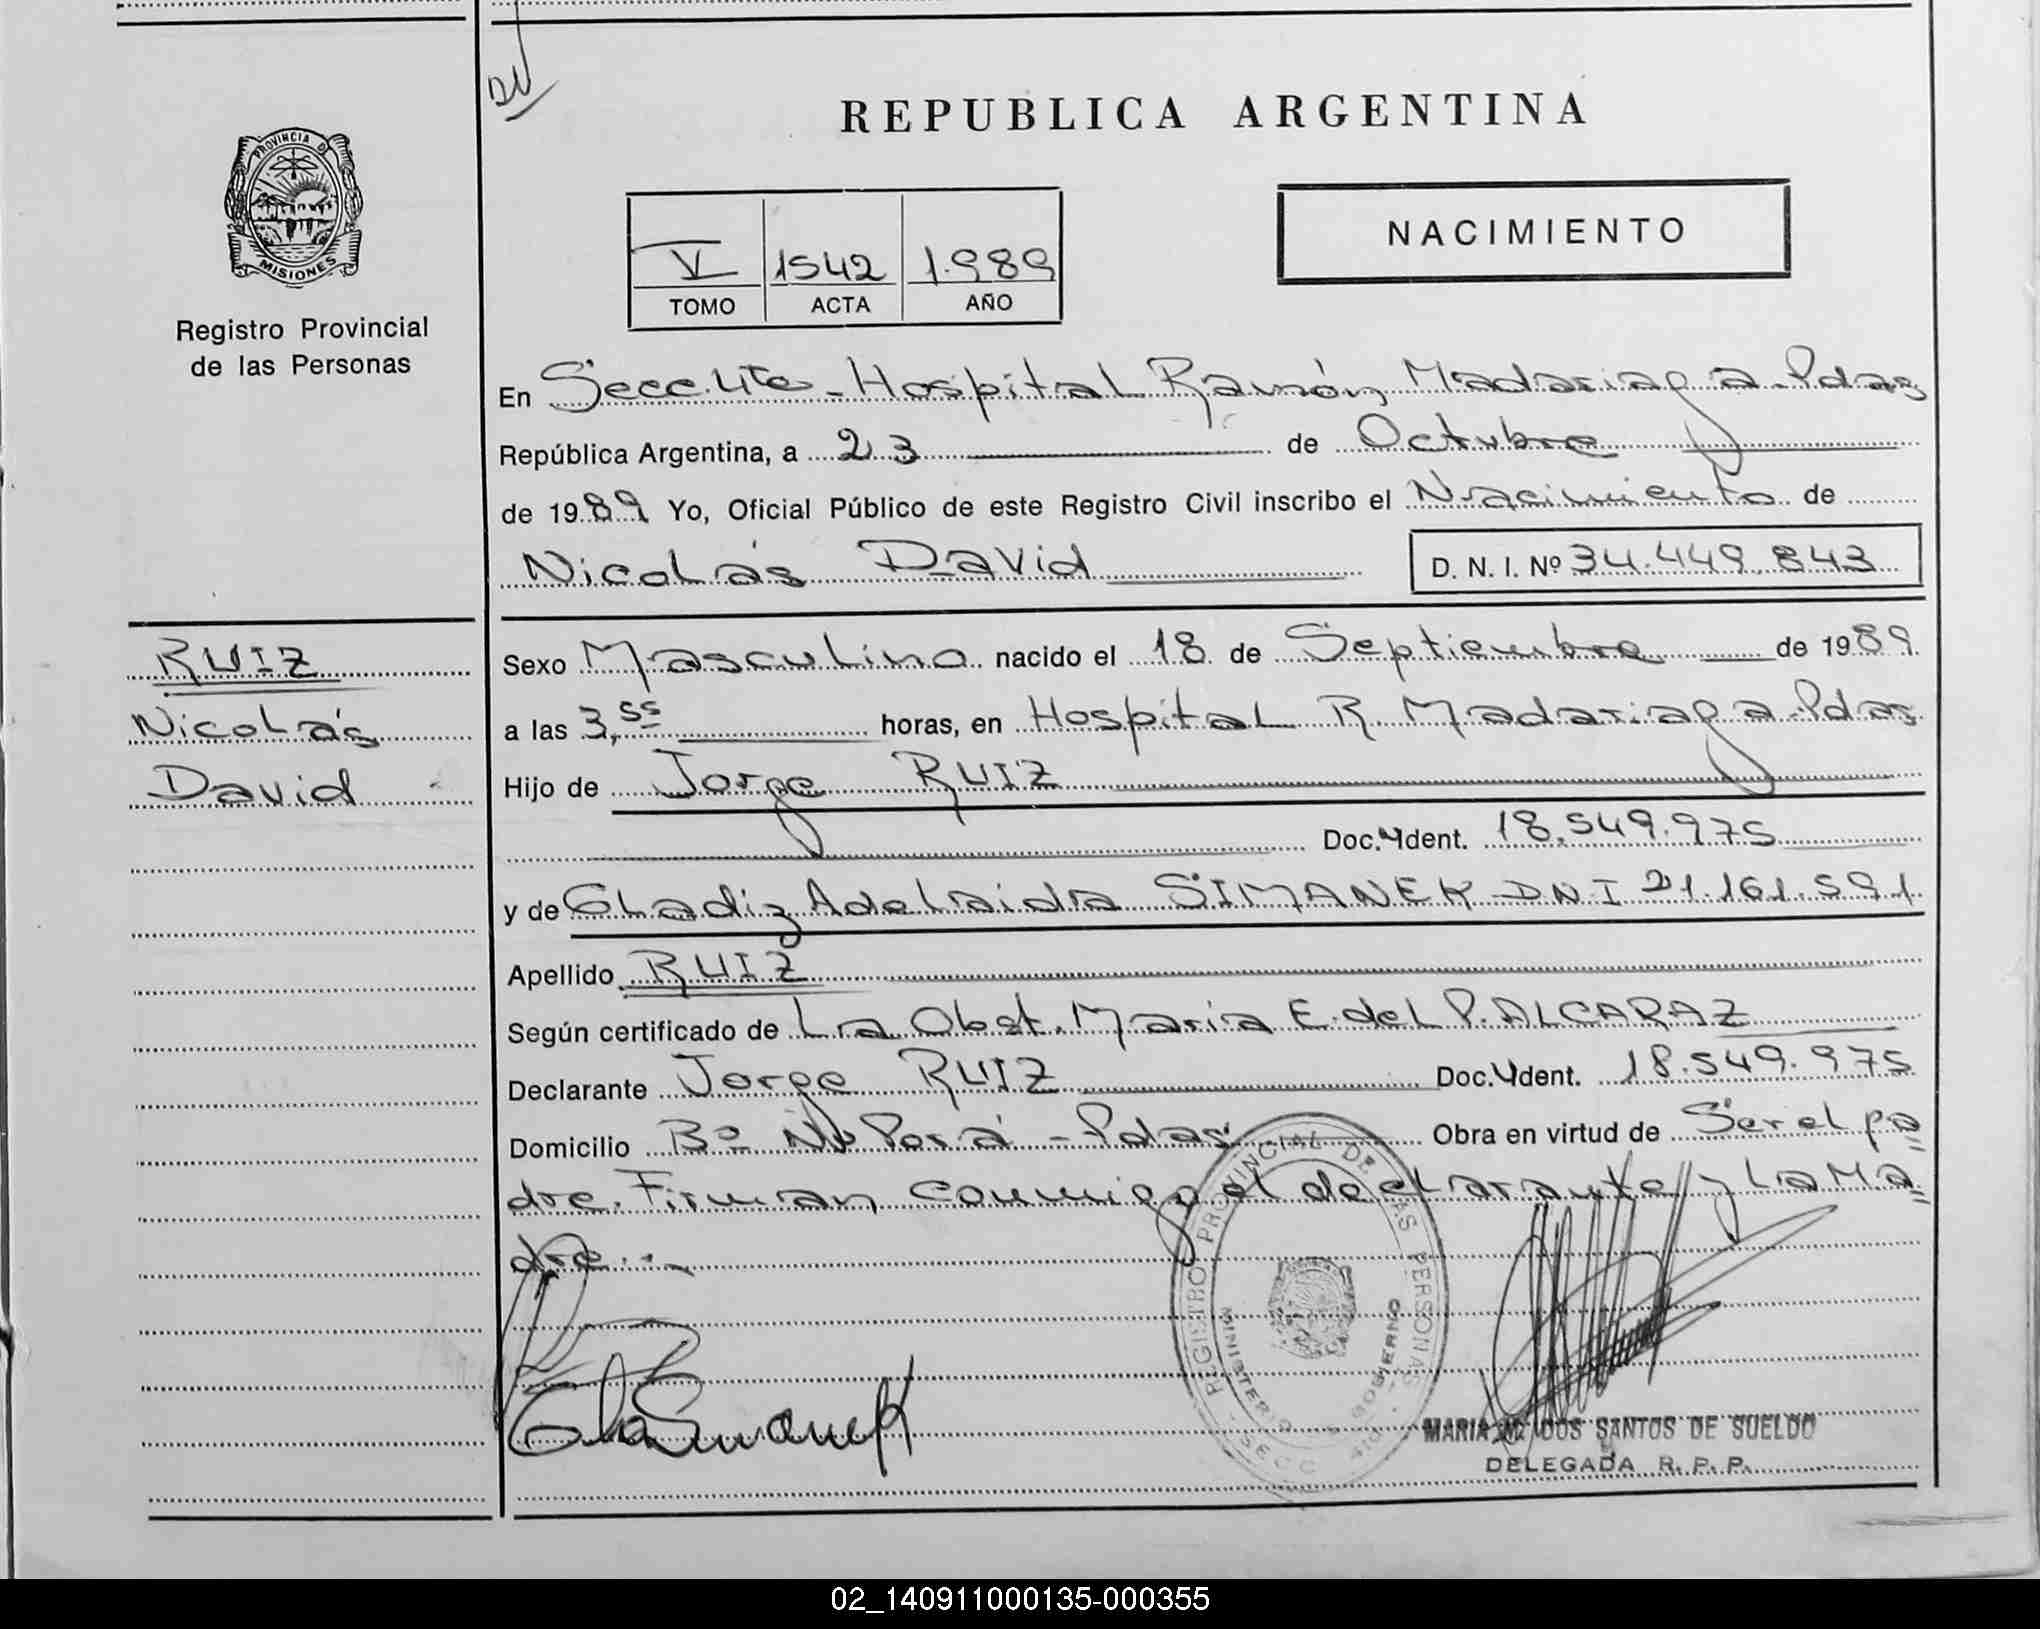 DV
PROVINCIA DE
MISIONES
Registro Provincial
de las Personas
REPUBLICA ARGENTINA
NACIMIENTO
V 1542 1.989
TOMO ACTA AÑO
En Secc. 4ta - Hospital Ramón Madariaga - Pdas
República Argentina, a 23 de Octubre
de 1989 Yo, Oficial Público de este Registro Civil inscribo el Nacimiento de
Nicolás David D. N. I. Nº 34.449.843
RUIZ
Nicolás
David
Sexo Masculino nacido el 18 de Septiembre de 1989
a las 3,55 horas, en Hospital R. Madariaga - Pdas
Hijo de Jorge RUIZ
Doc. Ident. 18.549.975
y de Gladiz Adelaida SIMANEK DNI 21.161.591
Apellido RUIZ
Según certificado de La Obst. María E. del P. ALCARAZ
Declarante Jorge RUIZ Doc. Ident. 18.549.975
Domicilio Bº Ñu Porá - Pdas Obra en virtud de Ser el pa=
dre. Firman conmigo el declarante y la Ma=
dre..-
REGISTRO PROVINCIAL DE LAS PERSONAS
MINISTERIO DE GOBIERNO
SECC
Gla Simanek
MARIA M. DOS SANTOS DE SUELDO
DELEGADA R. P. P.
02_140911000135-000355